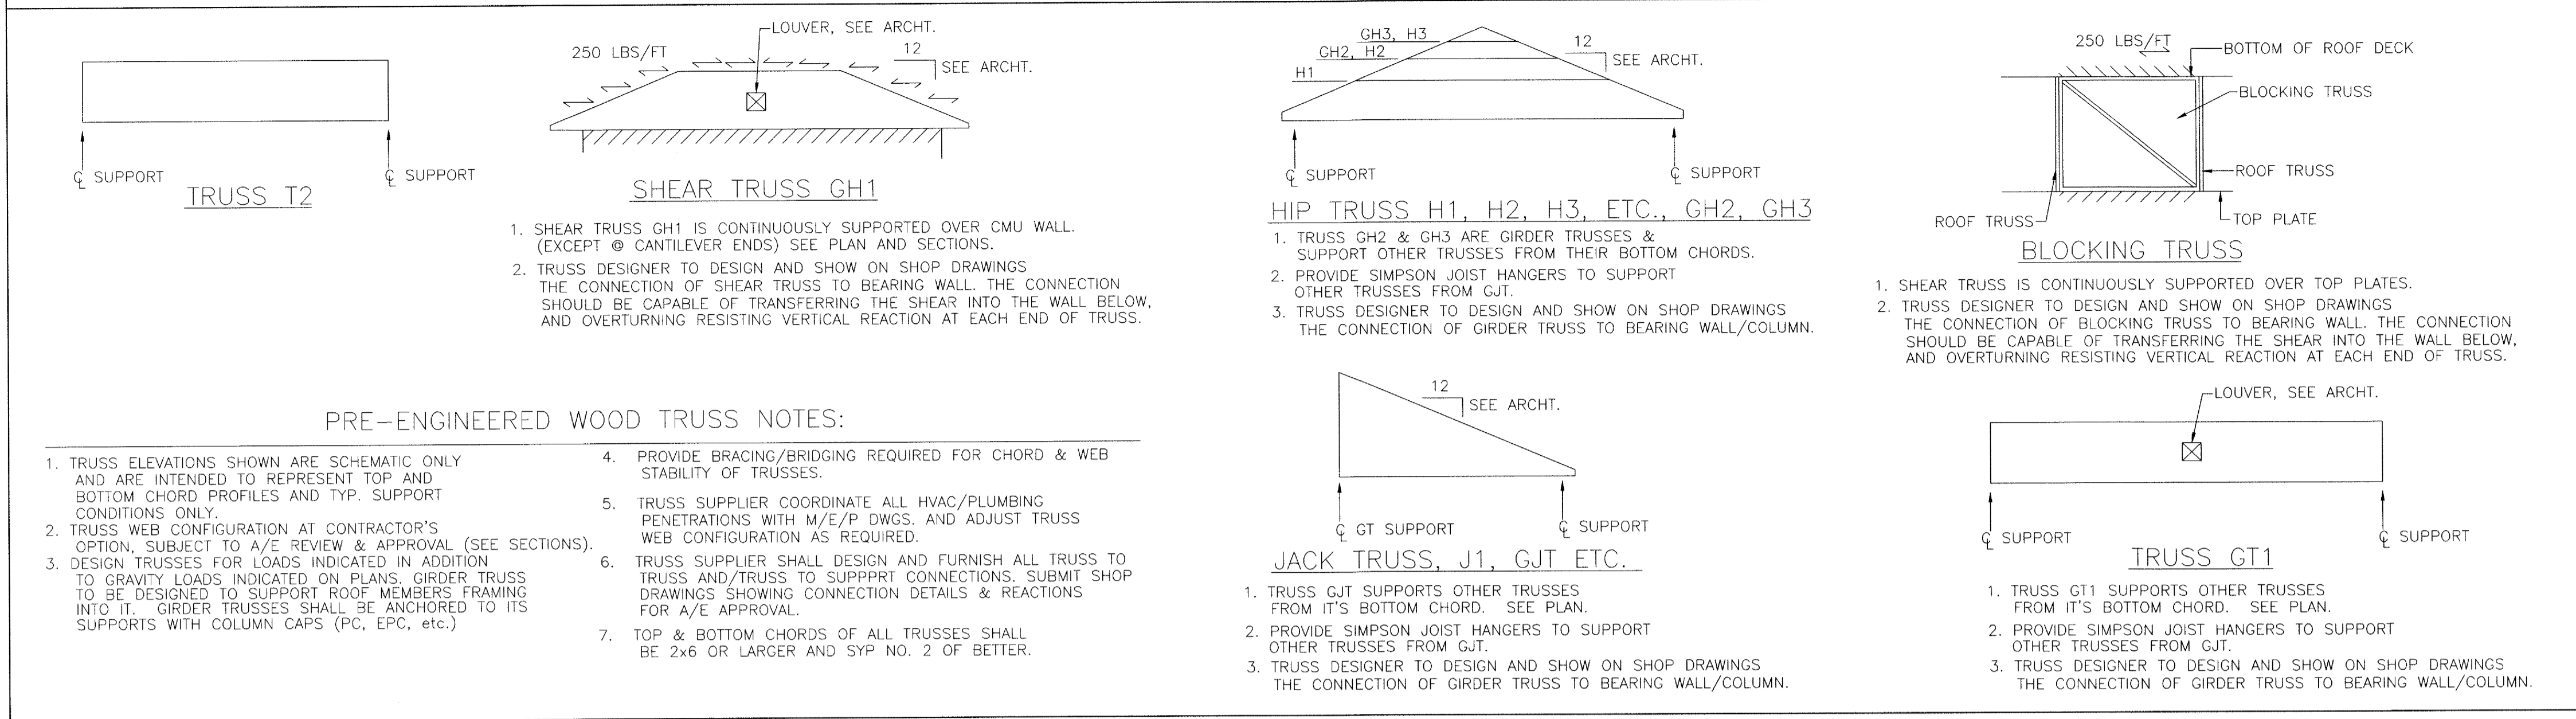 250 LBS/FT
LOUVER, SEE ARCHT.
12
SEE ARCHT.
℄ SUPPORT
℄ SUPPORT
TRUSS T2
SHEAR TRUSS GH1
1. SHEAR TRUSS GH1 IS CONTINUOUSLY SUPPORTED OVER CMU WALL.
(EXCEPT @ CANTILEVER ENDS) SEE PLAN AND SECTIONS.
2. TRUSS DESIGNER TO DESIGN AND SHOW ON SHOP DRAWINGS
THE CONNECTION OF SHEAR TRUSS TO BEARING WALL. THE CONNECTION
SHOULD BE CAPABLE OF TRANSFERRING THE SHEAR INTO THE WALL BELOW,
AND OVERTURNING RESISTING VERTICAL REACTION AT EACH END OF TRUSS.
PRE-ENGINEERED WOOD TRUSS NOTES:
1. TRUSS ELEVATIONS SHOWN ARE SCHEMATIC ONLY
AND ARE INTENDED TO REPRESENT TOP AND
BOTTOM CHORD PROFILES AND TYP. SUPPORT
CONDITIONS ONLY.
2. TRUSS WEB CONFIGURATION AT CONTRACTOR'S
OPTION, SUBJECT TO A/E REVIEW & APPROVAL (SEE SECTIONS).
3. DESIGN TRUSSES FOR LOADS INDICATED IN ADDITION
TO GRAVITY LOADS INDICATED ON PLANS. GIRDER TRUSS
TO BE DESIGNED TO SUPPORT ROOF MEMBERS FRAMING
INTO IT. GIRDER TRUSSES SHALL BE ANCHORED TO ITS
SUPPORTS WITH COLUMN CAPS (PC, EPC, etc.)
4. PROVIDE BRACING/BRIDGING REQUIRED FOR CHORD & WEB
STABILITY OF TRUSSES.
5. TRUSS SUPPLIER COORDINATE ALL HVAC/PLUMBING
PENETRATIONS WITH M/E/P DWGS. AND ADJUST TRUSS
WEB CONFIGURATION AS REQUIRED.
6. TRUSS SUPPLIER SHALL DESIGN AND FURNISH ALL TRUSS TO
TRUSS AND/TRUSS TO SUPPPRT CONNECTIONS. SUBMIT SHOP
DRAWINGS SHOWING CONNECTION DETAILS & REACTIONS
FOR A/E APPROVAL.
7. TOP & BOTTOM CHORDS OF ALL TRUSSES SHALL
BE 2x6 OR LARGER AND SYP NO. 2 OF BETTER.
GH3, H3
GH2, H2
H1
12
SEE ARCHT.
℄ SUPPORT
℄ SUPPORT
HIP TRUSS H1, H2, H3, ETC., GH2, GH3
1. TRUSS GH2 & GH3 ARE GIRDER TRUSSES &
SUPPORT OTHER TRUSSES FROM THEIR BOTTOM CHORDS.
2. PROVIDE SIMPSON JOIST HANGERS TO SUPPORT
OTHER TRUSSES FROM GJT.
3. TRUSS DESIGNER TO DESIGN AND SHOW ON SHOP DRAWINGS
THE CONNECTION OF GIRDER TRUSS TO BEARING WALL/COLUMN.
12
SEE ARCHT.
℄ GT SUPPORT
℄ SUPPORT
JACK TRUSS, J1, GJT ETC.
1. TRUSS GJT SUPPORTS OTHER TRUSSES
FROM IT'S BOTTOM CHORD. SEE PLAN.
2. PROVIDE SIMPSON JOIST HANGERS TO SUPPORT
OTHER TRUSSES FROM GJT.
3. TRUSS DESIGNER TO DESIGN AND SHOW ON SHOP DRAWINGS
THE CONNECTION OF GIRDER TRUSS TO BEARING WALL/COLUMN.
250 LBS/FT
BOTTOM OF ROOF DECK
BLOCKING TRUSS
ROOF TRUSS
ROOF TRUSS
TOP PLATE
BLOCKING TRUSS
1. SHEAR TRUSS IS CONTINUOUSLY SUPPORTED OVER TOP PLATES.
2. TRUSS DESIGNER TO DESIGN AND SHOW ON SHOP DRAWINGS
THE CONNECTION OF BLOCKING TRUSS TO BEARING WALL. THE CONNECTION
SHOULD BE CAPABLE OF TRANSFERRING THE SHEAR INTO THE WALL BELOW,
AND OVERTURNING RESISTING VERTICAL REACTION AT EACH END OF TRUSS.
LOUVER, SEE ARCHT.
℄ SUPPORT
℄ SUPPORT
TRUSS GT1
1. TRUSS GT1 SUPPORTS OTHER TRUSSES
FROM IT'S BOTTOM CHORD. SEE PLAN.
2. PROVIDE SIMPSON JOIST HANGERS TO SUPPORT
OTHER TRUSSES FROM GJT.
3. TRUSS DESIGNER TO DESIGN AND SHOW ON SHOP DRAWINGS
THE CONNECTION OF GIRDER TRUSS TO BEARING WALL/COLUMN.